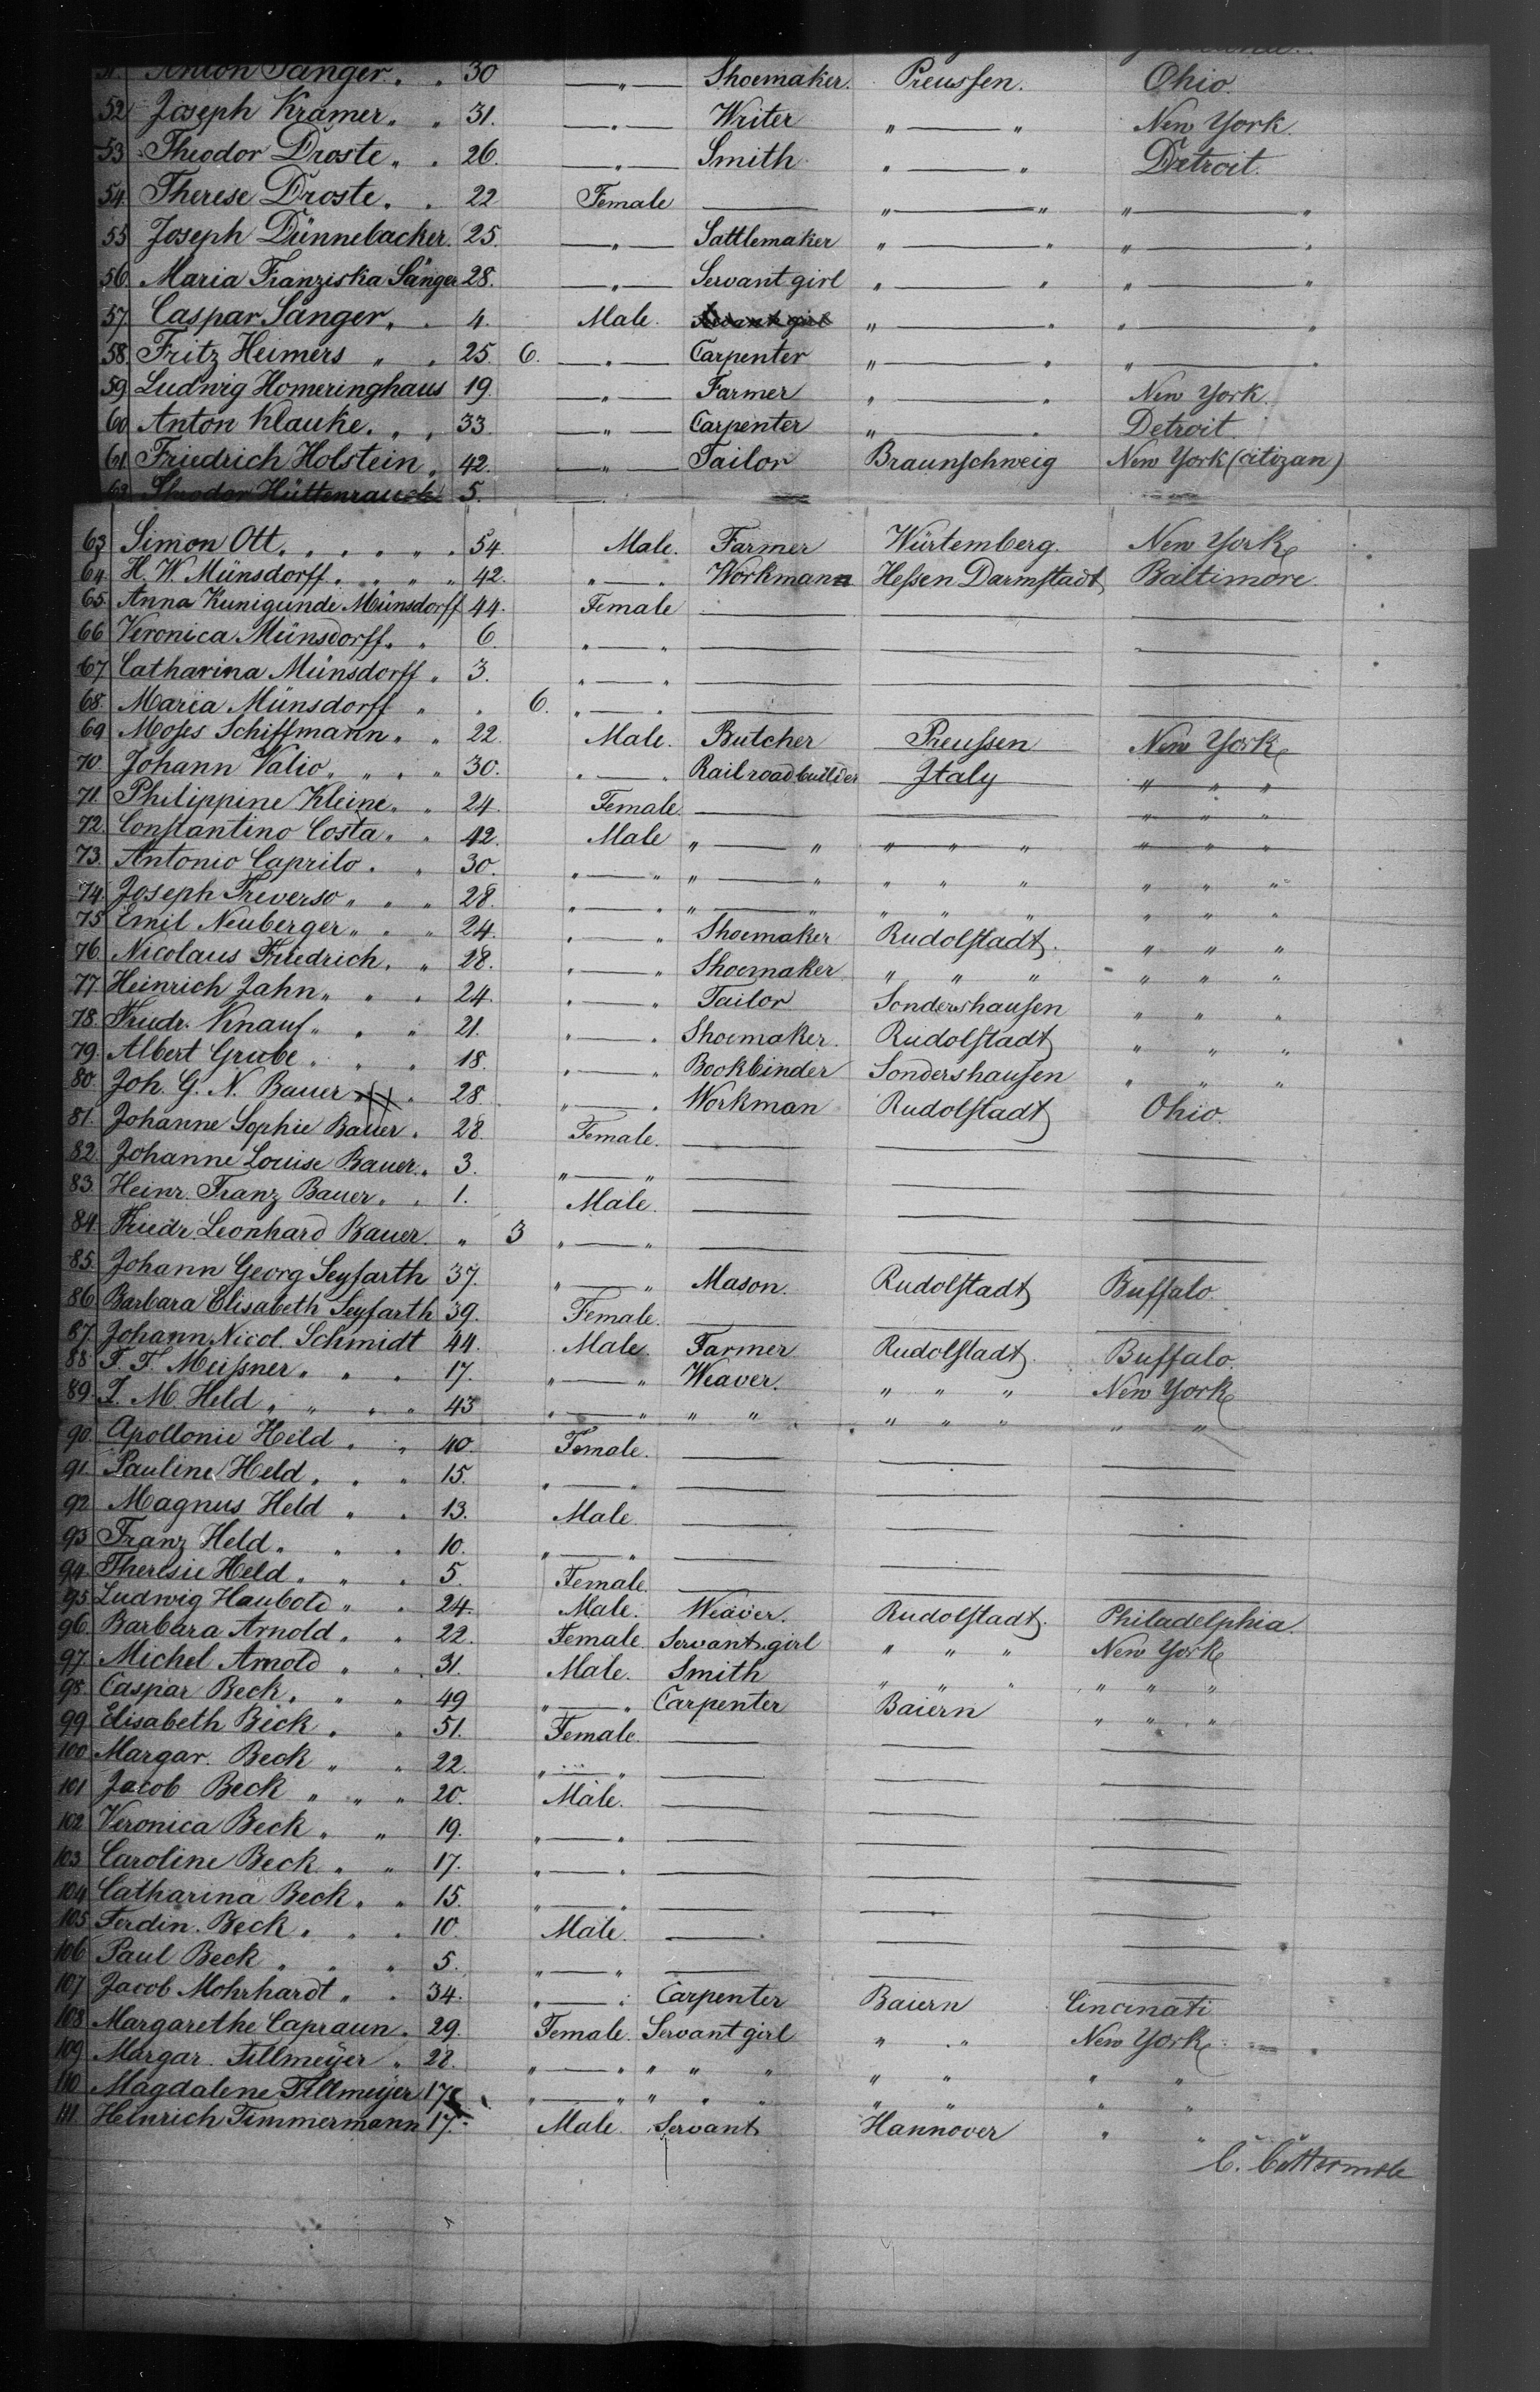 51. Anton Sänger. " 30 —"— Shoemaker. Preussen. Ohio.
52 Joseph Kramer. " 31. —"— Writer " — " New York.
53 Theodor Droste. " 26. —"— Smith " — " Detroit.
54. Therese Droste. " 22 Female — " — " " — "
55 Joseph Dünnebacker. 25. —"— Sattlemaker " — " " — "
56. Maria Franziska Sänger 28. —"— Servant girl " — " " — "
57. Caspar Sänger. " 4. Male. Servant girl " — " " — "
58. Fritz Heimers " " 25. 6. —"— Carpenter " — " " — "
59. Ludwig Homeringhaus 19. —"— Farmer " — " New York.
60 Anton Klauke. " " 33. —"— Carpenter " — " Detroit.
61 Friedrich Holstein. 42. —"— Tailor Braunschweig New York (citizan)
62 Theodor Hüttenrauch 5.
63 Simon Ott. . . . " " . 54. Male. Farmer Würtemberg. New York
64. H. W. Münsdorff. . . " " 42. "—" Workmann Hessen Darmstadt Baltimore
65. Anna Kunigunde Münsdorff 44. Female — — —
66 Veronica Münsdorff. " 6. "—" — — —
67 Catharina Münsdorff " 3. "—" — — —
68. Maria Münsdorff " " 6. "—" — — —
69 Moses Schiffmann. " 22. Male. Butcher Preussen New York
70. Johann Valio. " " " 30. "—" Railroadbuilder Italy " " "
71. Philippine Kleine. " 24. Female. — — " " "
72. Constantino Costa. " 42. Male " — " " " " " " "
73. Antonio Caprilo. " 30. "—" " — " " " " " " "
74. Joseph Treverso " " " 28. "—" " — " " " " " " "
75 Emil Neuberger " " " 24. "—" Shoemaker Rudolstadt. " " "
76. Nicolaus Friedrich. " 28. "—" Shoemaker " " " " " "
77 Heinrich Jahn " " " 24. "—" Tailor Sondershausen " " "
78. Friedr. Knauf " " " 21. "—" Shoemaker. Rudolstadt " " "
79. Albert Grabe . " " 18. "—" Bookbinder Sondershausen " " "
80. Joh. G. N. Bauer " 28. "—" Workman Rudolstadt Ohio.
81. Johanne Sophie Bauer. 28. Female. — — —
82. Johanne Louise Bauer. " 3. "—" — — —
83. Heinr. Franz Bauer. " 1. Male. — — —
84. Friedr. Leonhard Bauer. " 3 "—" — — —
85. Johann Georg Seyfarth 37. "—" Mason. Rudolstadt Buffalo.
86. Barbara Elisabeth Seyfarth 39. Female. — — —
87. Johann Nicol. Schmidt 44. Male. Farmer Rudolstadt. Buffalo.
88 F. F. Meissner. " " 17. "—" Weaver. " " " New York
89. J. M. Held. " " " 43 "—" " " " " " " "
90. Apollonie Held. " 40. Female. — — —
91. Pauline Held. " " 15. "—" — — —
92. Magnus Held " " 13. Male. — — —
93 Franz Held. " " 10. "—" — — —
94 Theresie Held. " " 5. Female. — — —
95. Ludwig Haubold " " 24. Male. Weaver. Rudolstadt. Philadelphia.
96. Barbara Arnold. " 22. Female. Servant girl " " " New York
97. Michel Arnold " " 31. Male. Smith " " " " " "
98. Caspar Beck. " " 49 "—" Carpenter Baiern " " "
99 Elisabeth Beck. " 51. Female. — — —
100 Margar. Beck " " 22. "—" — — —
101 Jacob Beck " " " 20. Male. — — —
102. Veronica Beck " " 19. "—" — — —
103 Caroline Beck " " 17. "—" — — —
104 Catharina Beck. " 15. "—" — — —
105 Ferdin. Beck. " " 10. Male. — — —
106 Paul Beck " " " 5. "—" — — —
107 Jacob Mohrhardt " " 34. "—" Carpenter Baiern Cincinati
108 Margarethe Capraun. 29. Female. Servant girl " " New York
109 Margar. Fillmeyer " 28. "—" " " " " " " "
110 Magdalene Fillmeyer 17 "—" " " " " " " "
111 Heinrich Timmermann 17. Male. Servant Hannover " "